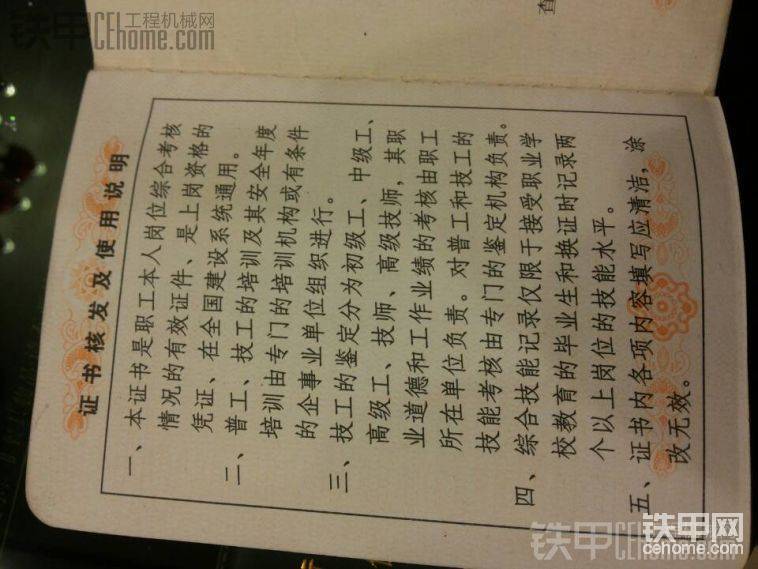 铁甲工程机械网
CEhome.com
查
证书核发及使用说明
一、本证书是职工本人岗位综合考核
情况的有效证件、是上岗资格的
凭证、在全国建设系统通用。
二、普工、技工的培训及其安全年度
培训由专门的培训机构或有条件
的企事业单位组织进行。
三、技工的鉴定分为初级工、中级工、
高级工、技师、高级技师，其职
业道德和工作业绩的考核由职工
所在单位负责。对普工和技工的
技能考核由专门的鉴定机构负责。
四、综合技能记录仅限于接受职业学
校教育的毕业生和换证时记录两
个以上岗位的技能水平。
五、证书内各项内容填写应清洁，涂
改无效。
铁甲CEhome
铁甲网
cehome.com